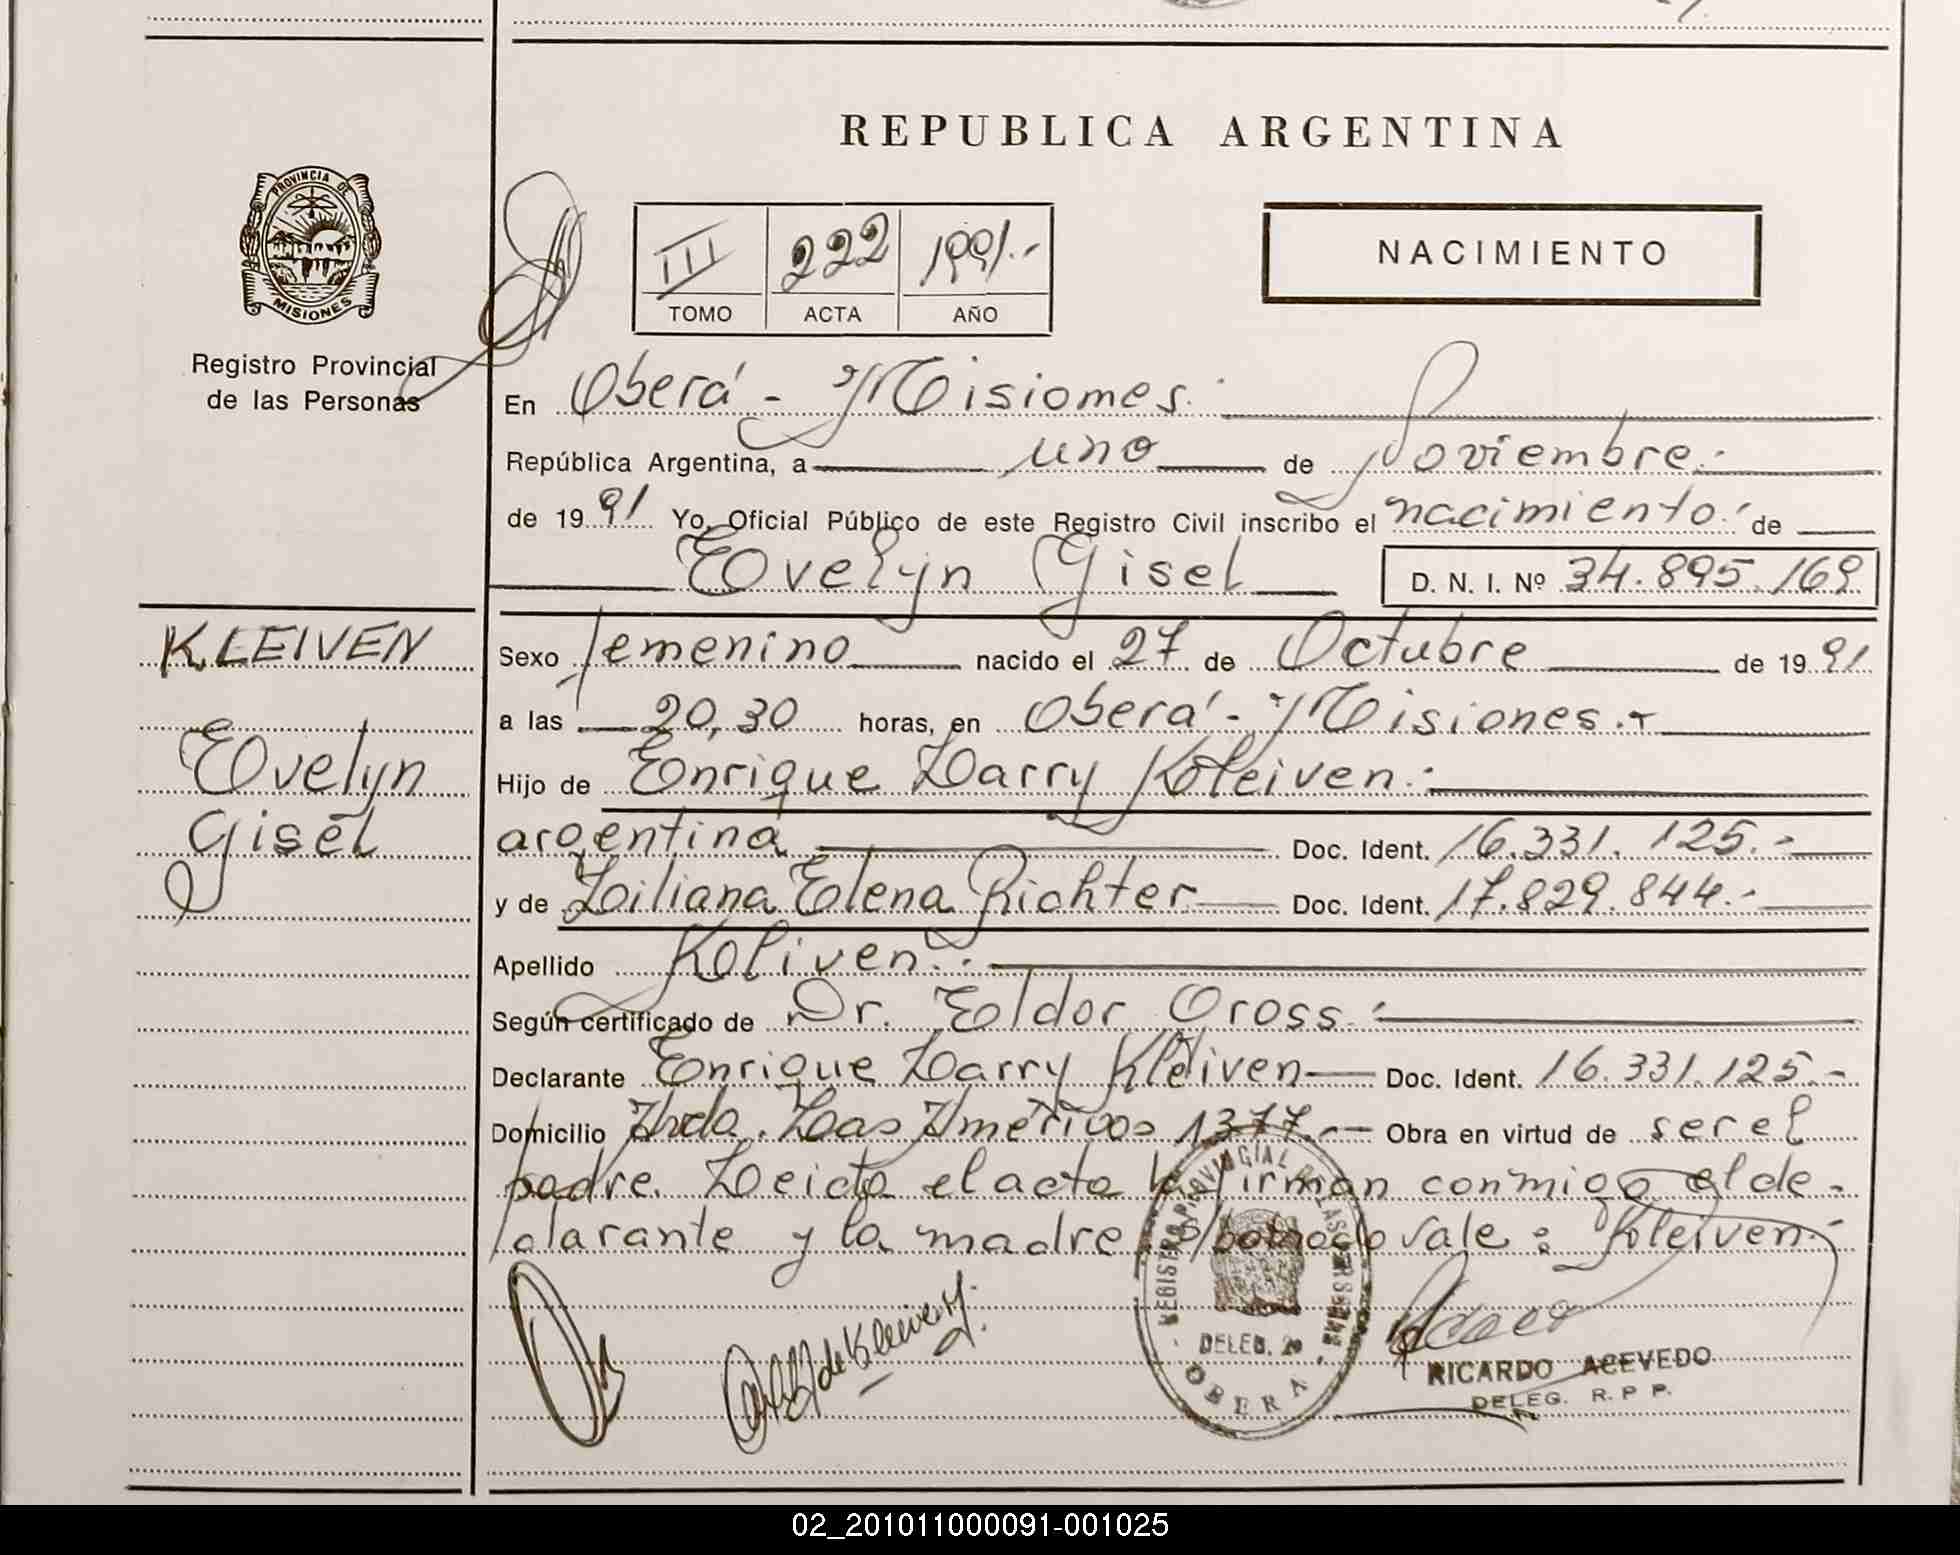 REPUBLICA ARGENTINA
PROVINCIA DE
MISIONES
Registro Provincial
de las Personas
III 222 1991.-
TOMO ACTA AÑO
NACIMIENTO
En Oberá - Misiones.
República Argentina, a uno de Noviembre.
de 1991 Yo, Oficial Público de este Registro Civil inscribo el nacimiento de
Evelyn Gisel D. N. I. Nº 34.895.169
KLEIVEN
Evelyn
Gisel
Sexo femenino nacido el 27 de Octubre de 1991
a las 20,30 horas, en Oberá - Misiones.-
Hijo de Enrique Larry Kleiven.
argentina Doc. Ident. 16.331.125.-
y de Liliana Elena Richter Doc. Ident. 17.829.844.-
Apellido Kliven.
Según certificado de Dr. Eldor Oross.
Declarante Enrique Larry Kleiven Doc. Ident. 16.331.125.-
Domicilio Avda. Las Américas 1377.- Obra en virtud de ser el
padre. Leida el acta la firman conmigo el de-
clarante y la madre s/borrado vale: Kleiven.-
de Kleiven
REGISTRO PROVINCIAL DE LAS PERSONAS
DELEG. 20
OBERA
RICARDO ACEVEDO
DELEG. R. P. P.
02_201011000091-001025